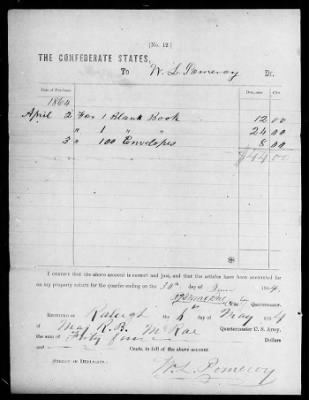 [No. 12]
THE CONFEDERATE STATES,
To W. L. Pomeroy Dr.
Date of Purchase. Dollars. Cts.
1864
April 2 For 1 Blank Book 12 00
" 1 " " 24 00
3 " 100 Envelopes 8 00
$44 00
I certify that the above account is correct and just, and that the articles have been accounted for
on my property return for the quarter ending on the 30th day of June 1864
Quartermaster.
Received at Raleigh the 4th day of May 1864
of Maj R. B. McRae Quartermaster C. S. Army,
the sum of Forty four Dollars
Cents, in full of the above account
[Signed in Duplicate.]
W. L. Pomeroy